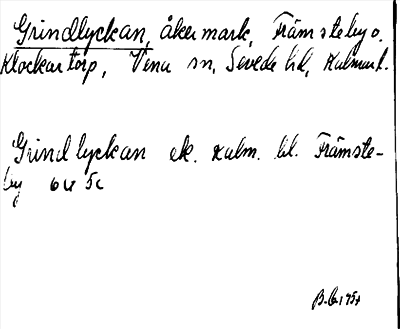 Grindlyckan, åkermark, Främsteby o.
Klockartorp, Vena sn, Sevede hd, Kalmar l.
Grindlyckan ek. Kalm. bl. Främste-
by 6 u 5c